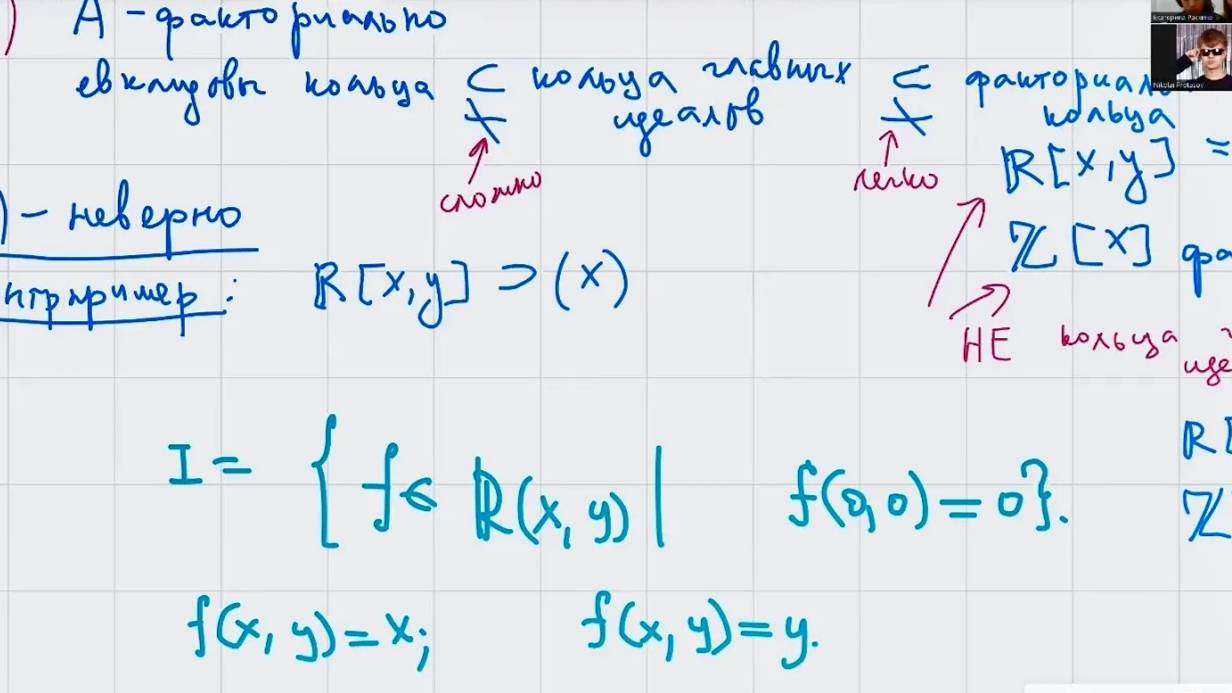 ) А - факториально
евклидовы кольца ⊊ кольца главных идеалов ⊊ факториаль кольца
сложно
легко
ℝ[x,y] =
ℤ[x] фа
НЕ кольца
) - неверно
нтрпример: ℝ[x,y] ⊃ (x)
I = { f ∈ ℝ(x, y) | f(0,0) = 0}.
f(x, y) = x; f(x, y) = y.
ℝ[
ℤ
Nikolai Protasov